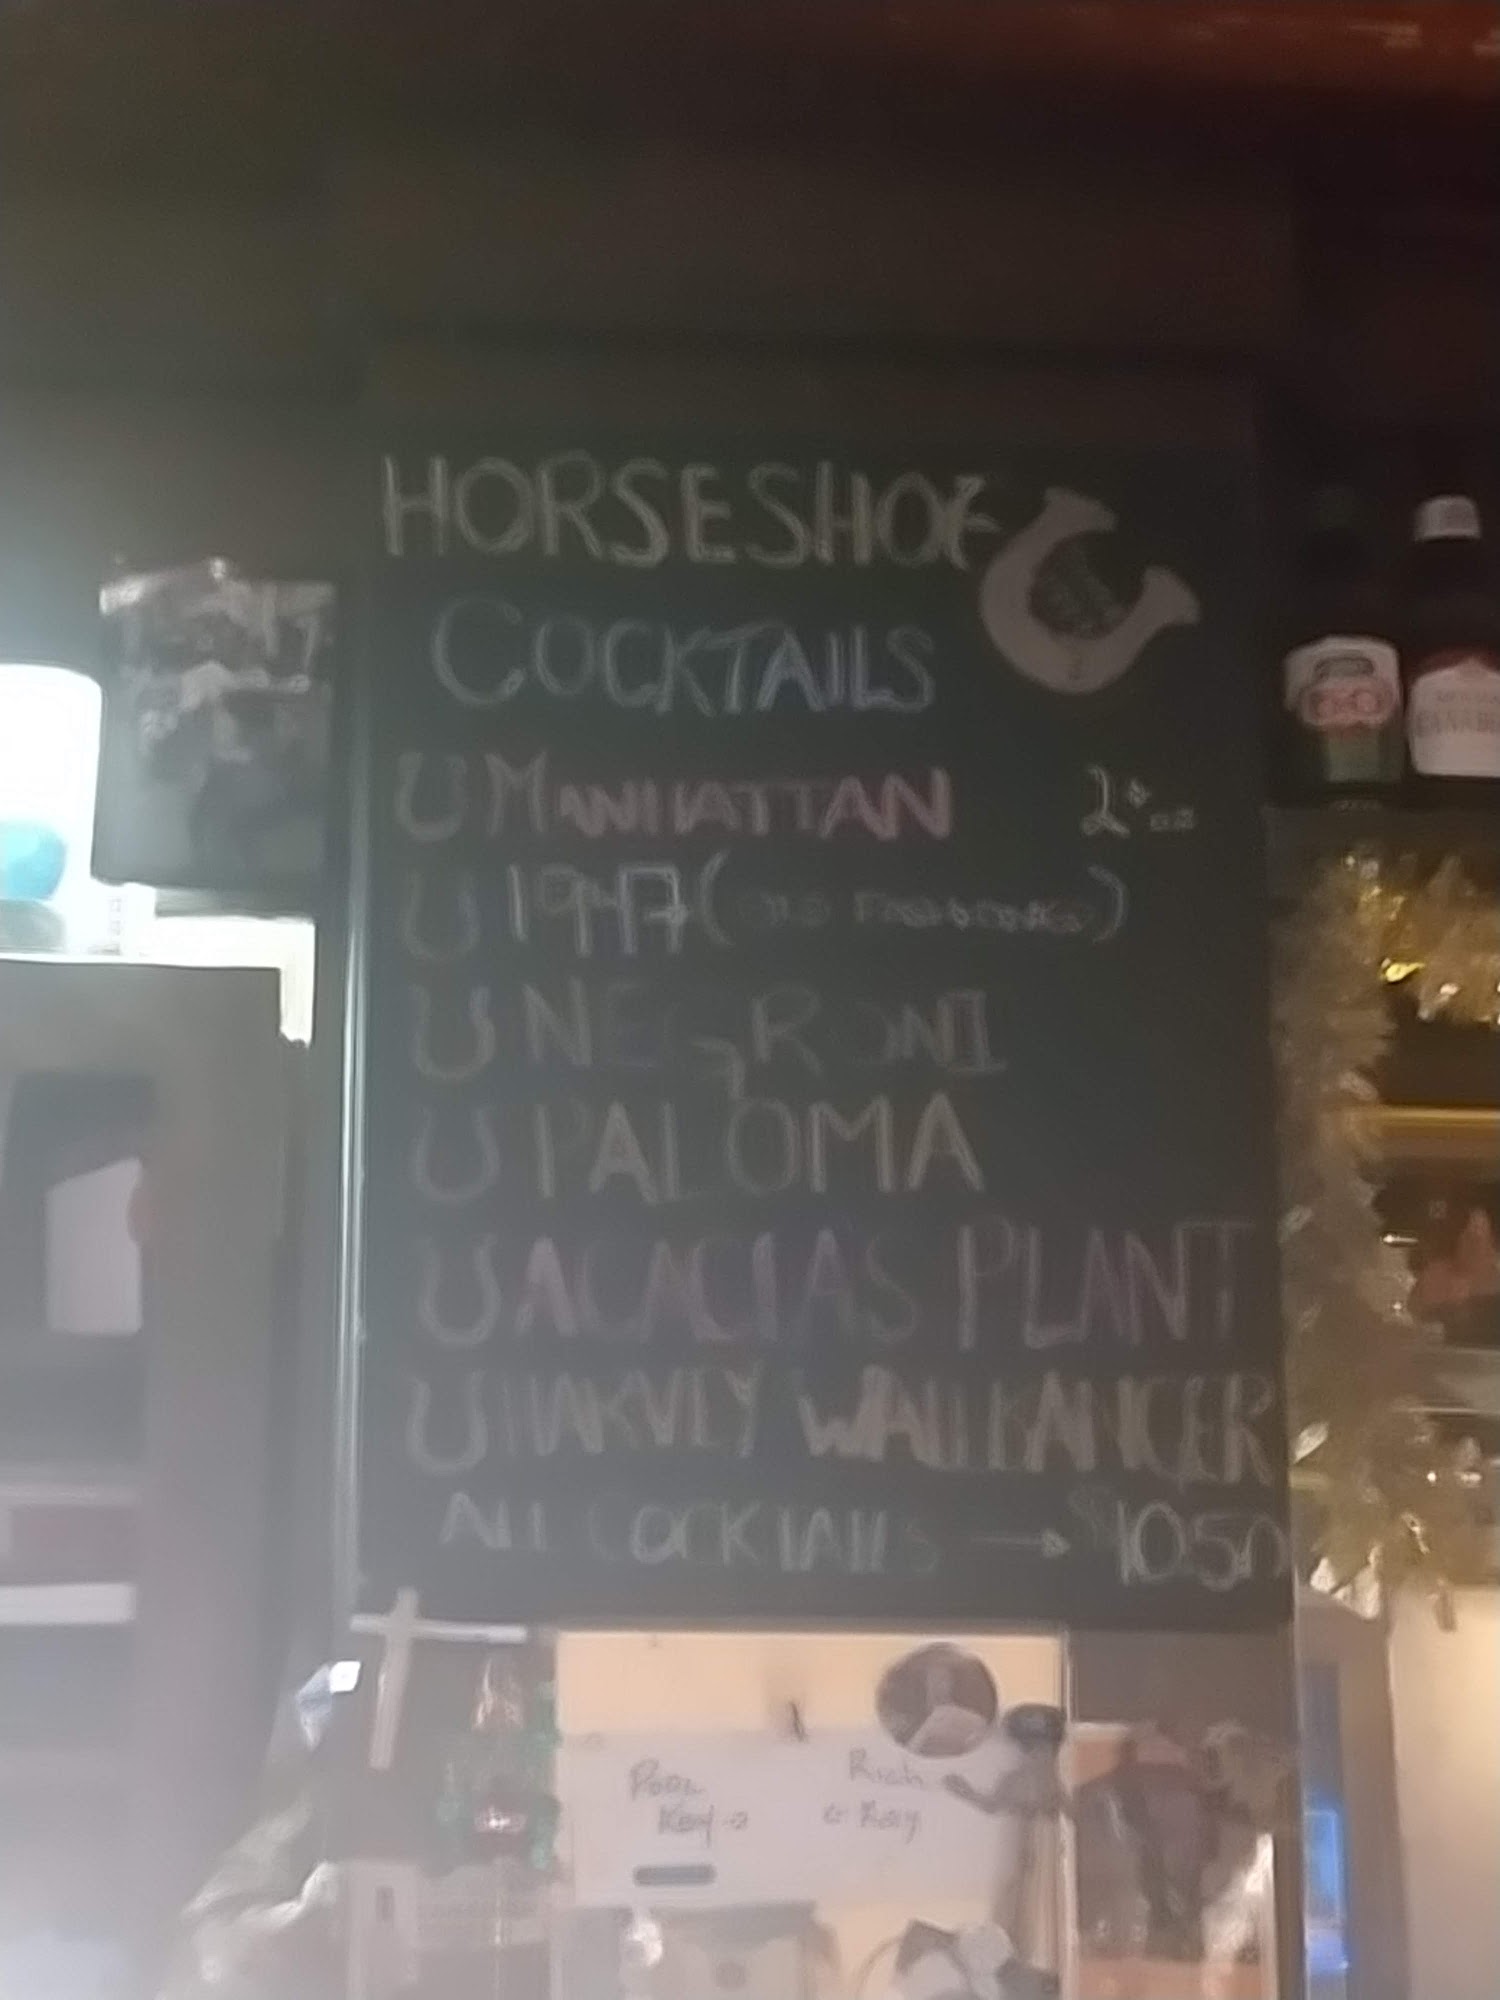 HORSESHOE
COCKTAILS
MANHATTAN 2
1947 (
NEGRONI
PALOMA
ACACIAS PLANT
HARVEY WALLBANGER
ALL COCKTAILS → $10.50
Key →
← Key